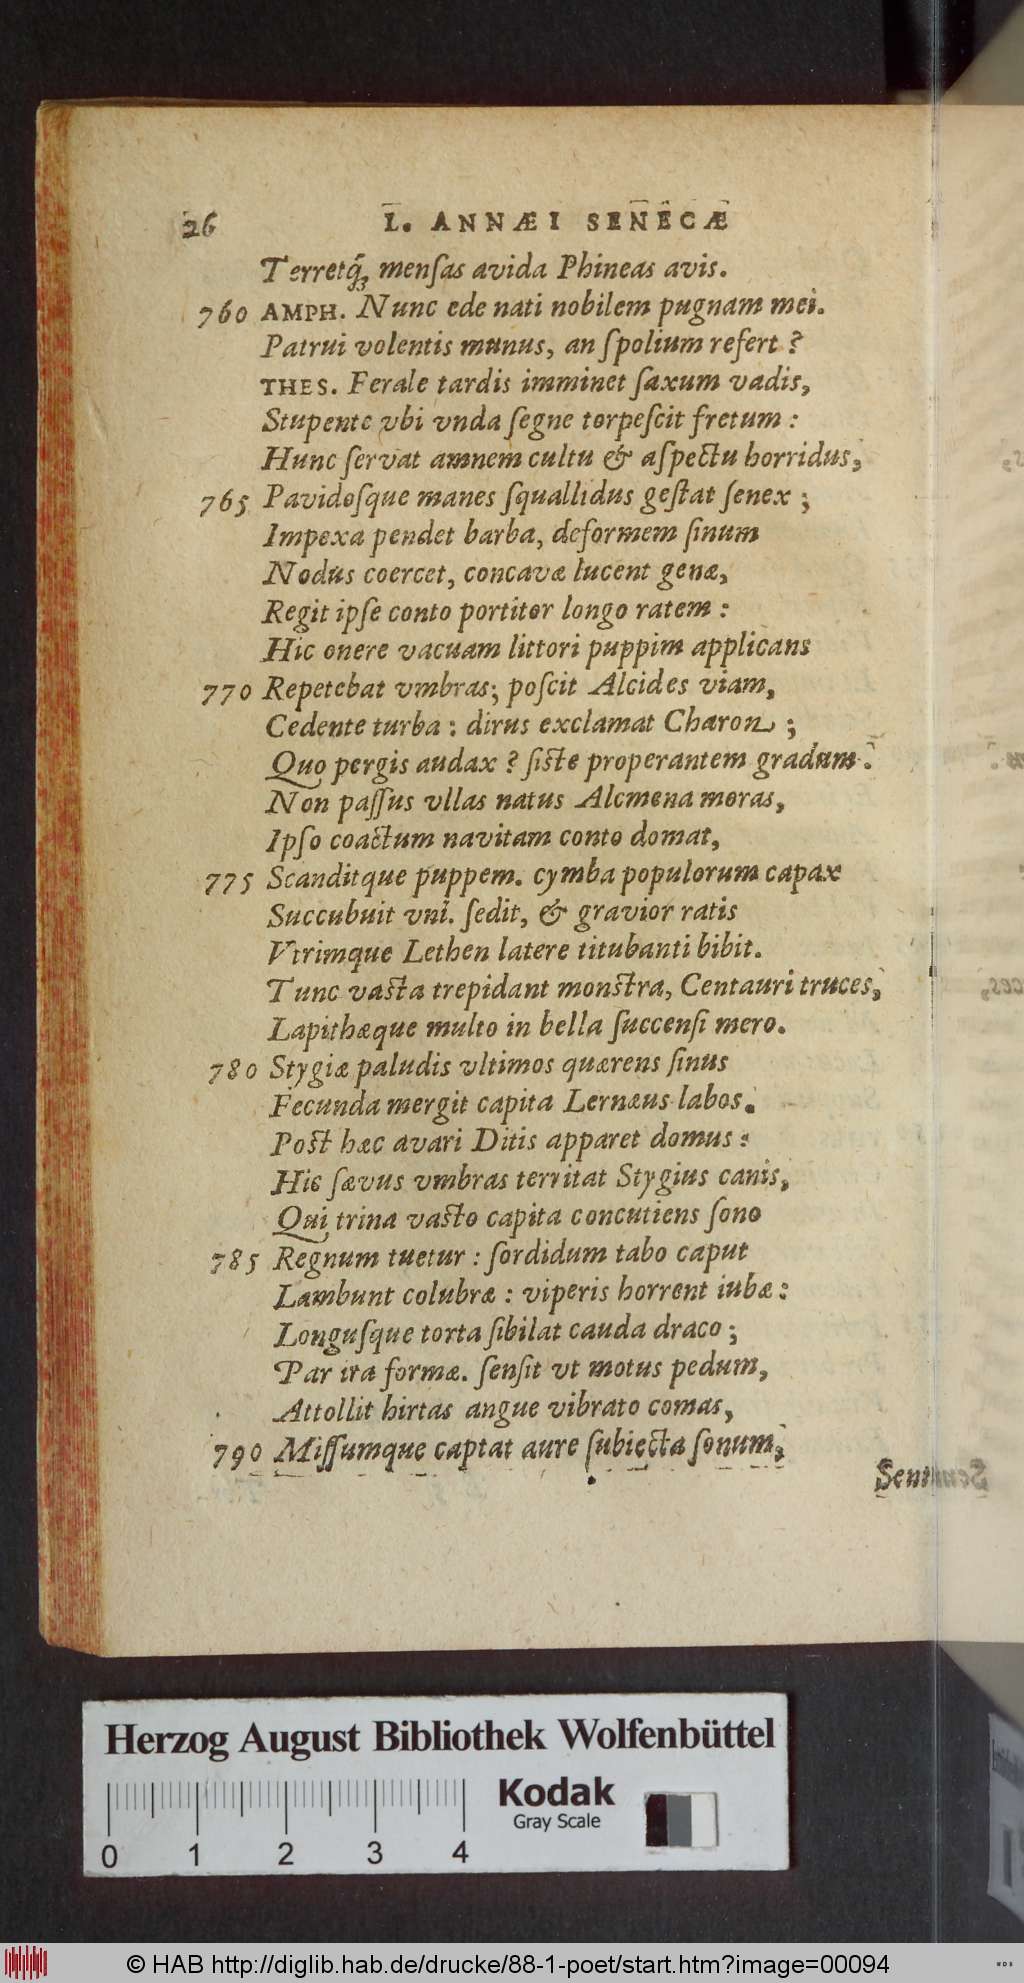 26 L. ANNÆI SENECÆ
Terretq́; menſas avida Phineas avis.
760 AMPH. Nunc ede nati nobilem pugnam mei.
Patrui volentis munus, an ſpolium refert?
THES. Ferale tardis imminet ſaxum vadis,
Stupente vbi vnda ſegne torpeſcit fretum:
Hunc ſervat amnem cultu & aſpectu horridus,
765 Pavidoſque manes ſquallidus geſtat ſenex;
Impexa pendet barba, deformem ſinum
Nodus coercet, concavæ lucent genæ,
Regit ipſe conto portitor longo ratem:
Hic onere vacuam littori puppim applicans
770 Repetebat vmbras; poſcit Alcides viam,
Cedente turba: dirus exclamat Charon;
Quo pergis audax? ſiſte properantem gradum.
Non paſſus vllas natus Alcmena moras,
Ipſo coactum navitam conto domat,
775 Scanditque puppem. cymba populorum capax
Succubuit vni. ſedit, & gravior ratis
Vtrimque Lethen latere titubanti bibit.
Tunc vaſta trepidant monſtra, Centauri truces,
Lapithæque multo in bella ſuccenſi mero.
780 Stygiæ paludis vltimos quærens ſinus
Fecunda mergit capita Lernæus labos.
Poſt hæc avari Ditis apparet domus:
Hic ſævus vmbras territat Stygius canis,
Qui trina vaſto capita concutiens ſono
785 Regnum tuetur: ſordidum tabo caput
Lambunt colubræ: viperis horrent iubæ:
Longuſque torta ſibilat cauda draco;
Par ira formæ. ſenſit vt motus pedum,
Attollit hirtas angue vibrato comas,
790 Miſſumque captat aure ſubiecta ſonum,
Sent
Herzog August Bibliothek Wolfenbüttel
Kodak
Gray Scale
0 1 2 3 4
© HAB http://diglib.hab.de/drucke/88-1-poet/start.htm?image=00094